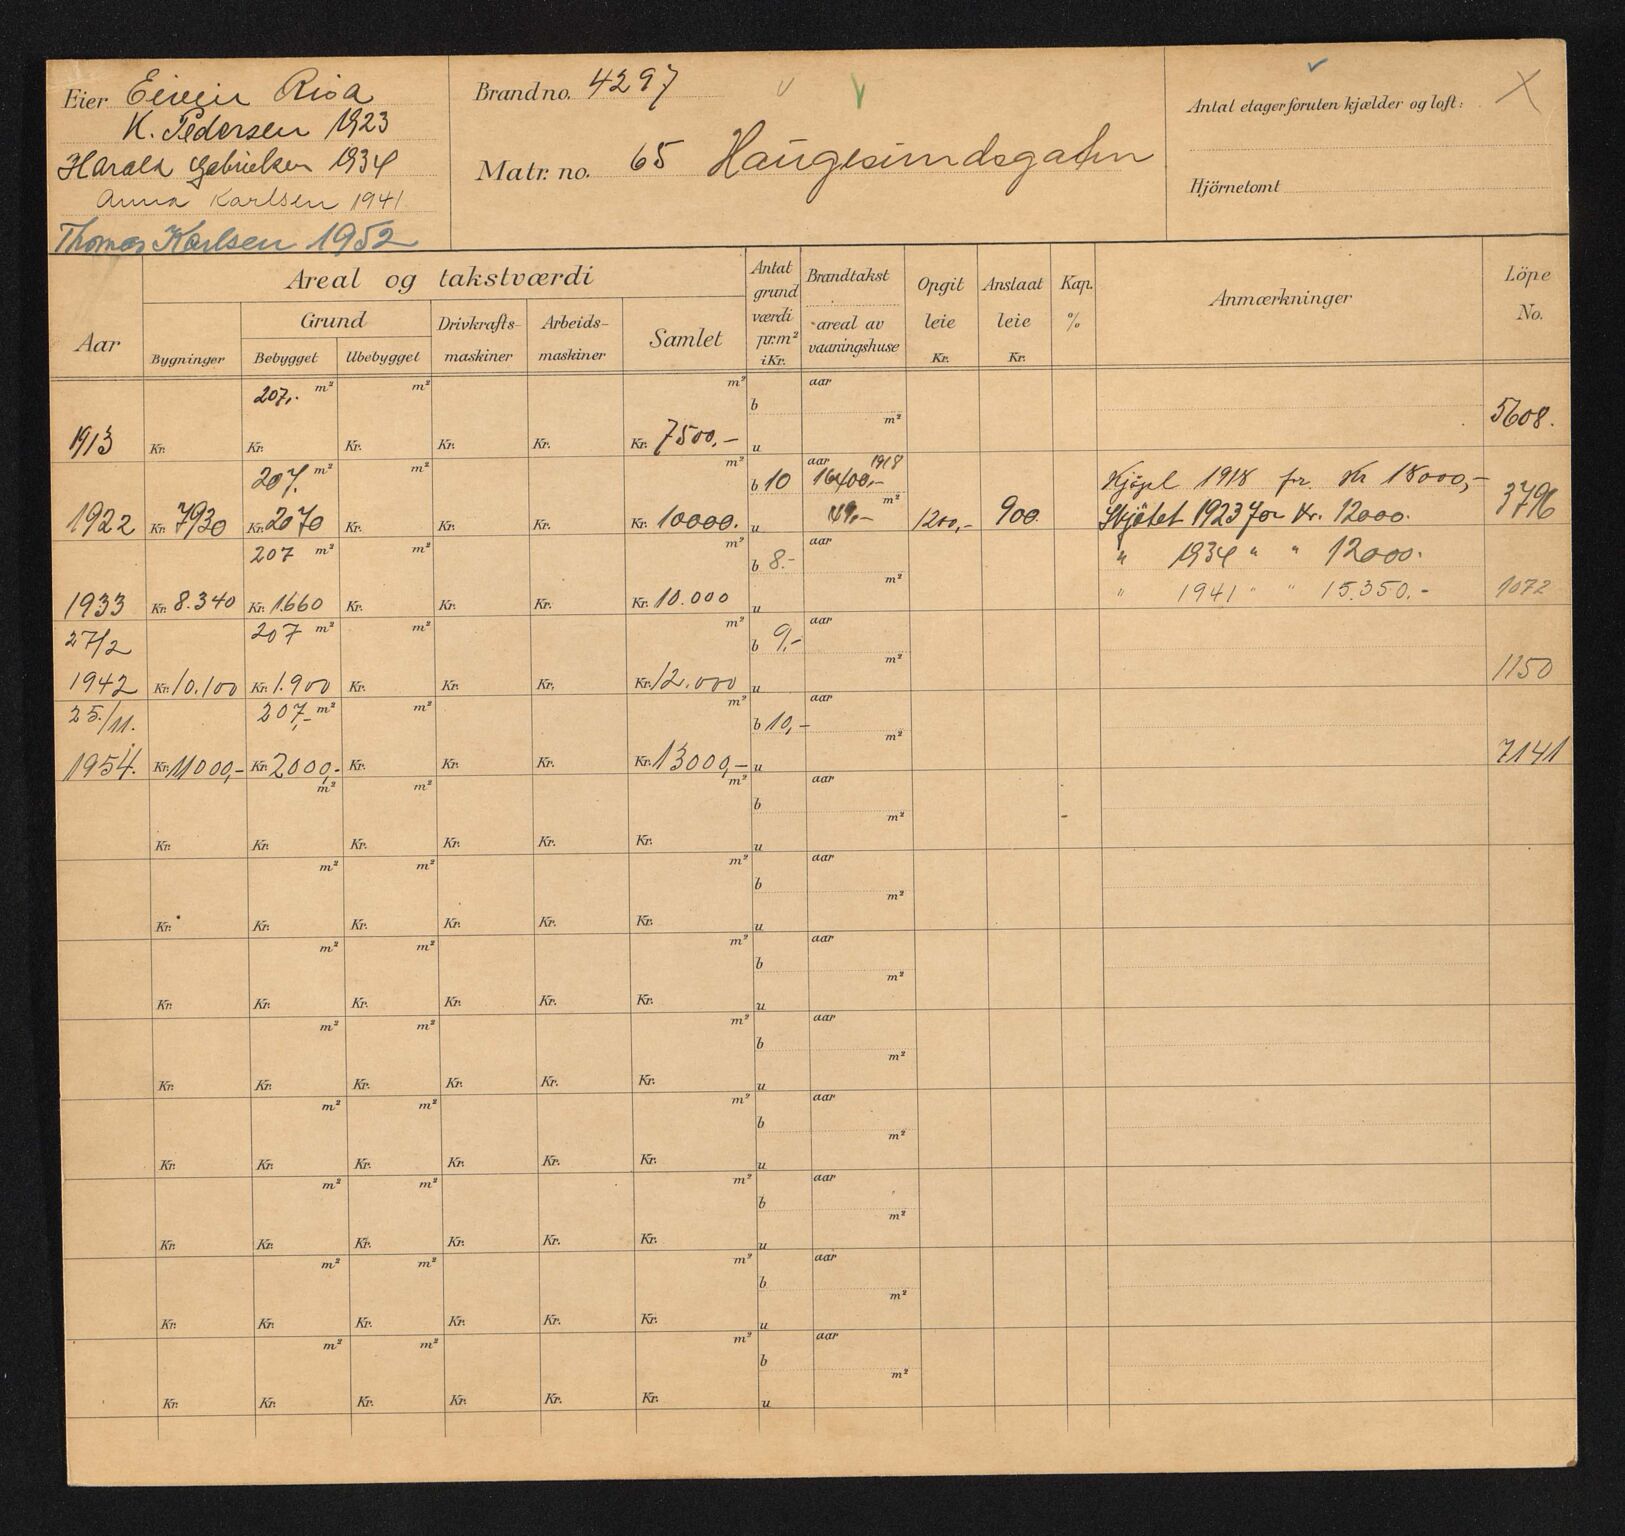 Eier Eivein Risa
K. Pedersen 1923
Harald Gabrielsen 1934
Anna Karlsen 1941
Thomas Karlsen 1952
Brandno. 4297
Matr. no. 65 Haugesundsgaten
Antal etager foruten kjælder og loft:
Hjörnetomt
Aar
Areal og takstværdi
Bygninger
Grund
Bebygget Ubebygget
Drivkrafts-maskiner
Arbeids-maskiner
Samlet
Antat grund værdi pr. m² i Kr.
Brandtakst areal av vaaningshuse
Opgit leie Kr.
Anslaat leie Kr.
Kap. %
Anmærkninger
Löpe No.
207,- m² m² m² aar
b m²
1913 Kr. Kr. Kr. Kr. Kr. Kr. 7500,- u 5608.
207. m² m² m² b 10 aar 1918 16400,- Kjøpt 1918 for Kr 18000,-
1922 Kr. 7930 Kr. 2070 Kr. Kr. Kr. Kr. 10000. u 49,- m² 1200,- 900. Skjötet 1923 for Kr. 12000. 3796
207 m² m² m² b 8.- aar " 1934 " " 12000.
1933 Kr. 8.340 Kr. 1660 Kr. Kr. Kr. Kr. 10.000 u m² " 1941 " " 15.350.- 1072
27/2 207 m² m² m² b 9,- aar
1942 Kr. 10.100 Kr. 1.900 Kr. Kr. Kr. Kr. 12.000 u m² 1150
25./11. 207,- m² m² m² b 10,- aar
1954. Kr. 11000,- Kr. 2000,- Kr. Kr. Kr. Kr. 13000,- u m² 7141
m² m² m² b aar
Kr. Kr. Kr. Kr. Kr. Kr. u m²
m² m² m² b aar
Kr. Kr. Kr. Kr. Kr. Kr. u m²
m² m² m² b aar
Kr. Kr. Kr. Kr. Kr. Kr. u m²
m² m² m² b aar
Kr. Kr. Kr. Kr. Kr. Kr. u m²
m² m² m² b aar
Kr. Kr. Kr. Kr. Kr. Kr. u m²
m² m² m² b aar
Kr. Kr. Kr. Kr. Kr. Kr. u m²
m² m² m² b aar
Kr. Kr. Kr. Kr. Kr. Kr. u m²
m² m² m² b aar
Kr. Kr. Kr. Kr. Kr. Kr. u m²